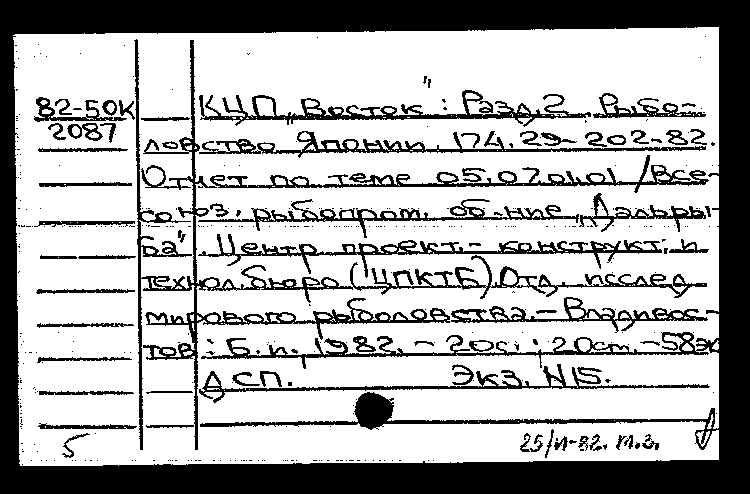 82-50К КЦП „Восток": Разд.2 Рыбо-
2087 ловство Японии. 174.29-202-82.
Отчет по теме 05.07.01.01 /Все-
союз. рыбопром. об-ние „Дальры-
ба". Центр проект.- конструкт. и
технол. бюро (ЦПКТБ). Отд. исслед
мирового рыболовства.- Владивос-
ток: Б.и., 1982. - 20с.; 20см. -58эк
ДСП. Экз. N15.
5 25/II-82.